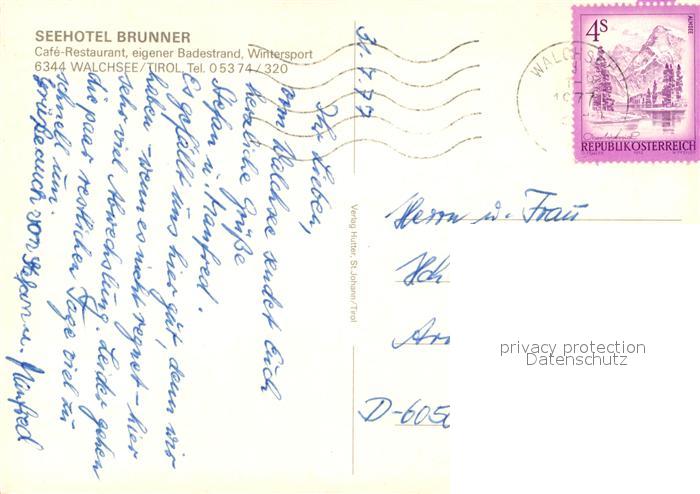 SEEHOTEL BRUNNER
Café-Restaurant, eigener Badestrand, Wintersport
6344 WALCHSEE/TIROL, Tel. 0 53 74 / 320
31.7.77
Ihr Lieben,
vom Walchsee sendet Euch
herzliche Grüße
Stefan u. Manfred.
Es gefällt uns hier gut, denn wir
haben – wenn es nicht regnet – hier
sehr viel Abwechslung. Leider gehen
die paar restlichen Tage viel zu
schnell um.
Grüße euch von Stefan u. Manfred
Verlag Hutter, St. Johann/Tirol
4S
ALMSEE
REPUBLIK ÖSTERREICH
WALCHSEE
1977
Herrn u. Frau
D-605
privacy protection
Datenschutz